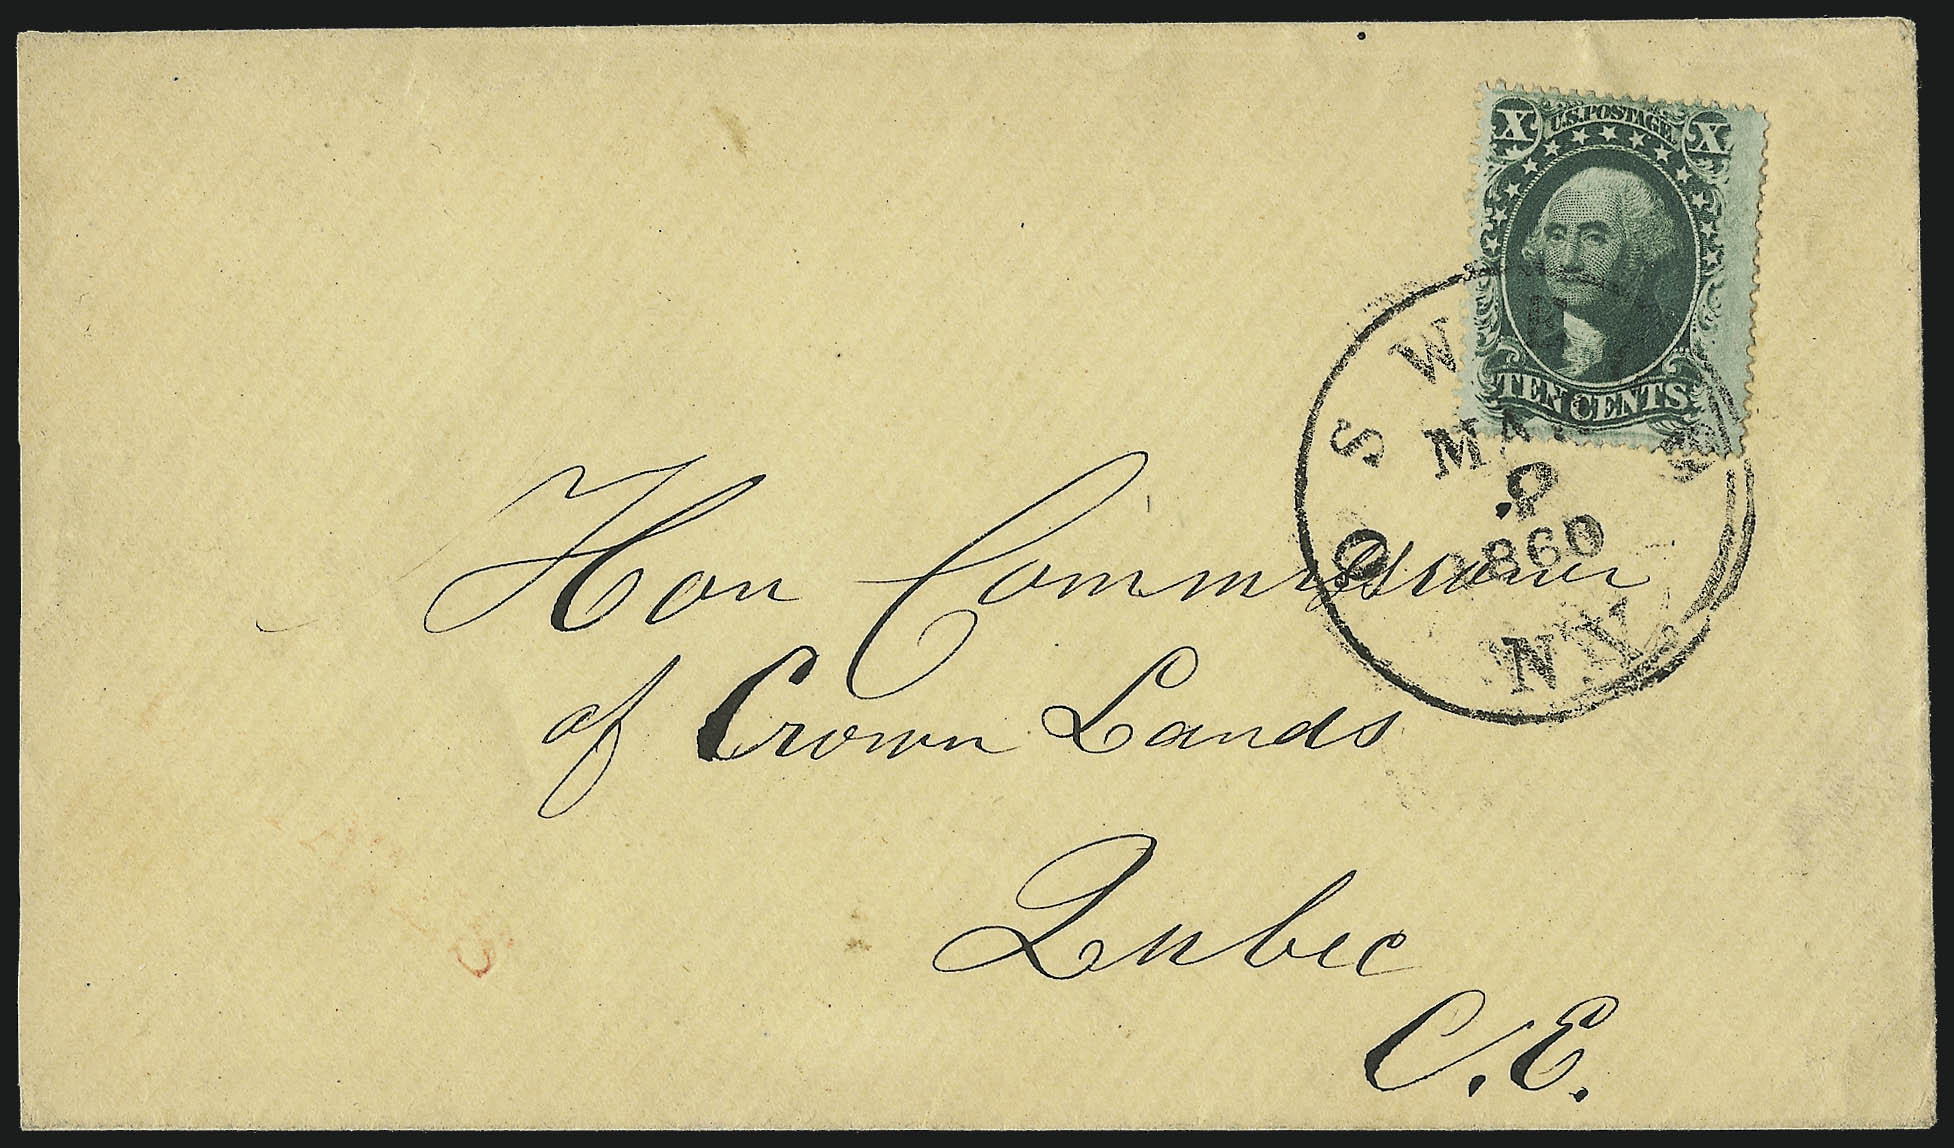 X U.S. POSTAGE. X
TEN CENTS
OSWEGO
MAR
9
1860
N Y
Hon Commissioner
of Crown Lands
Qubec
C.E.